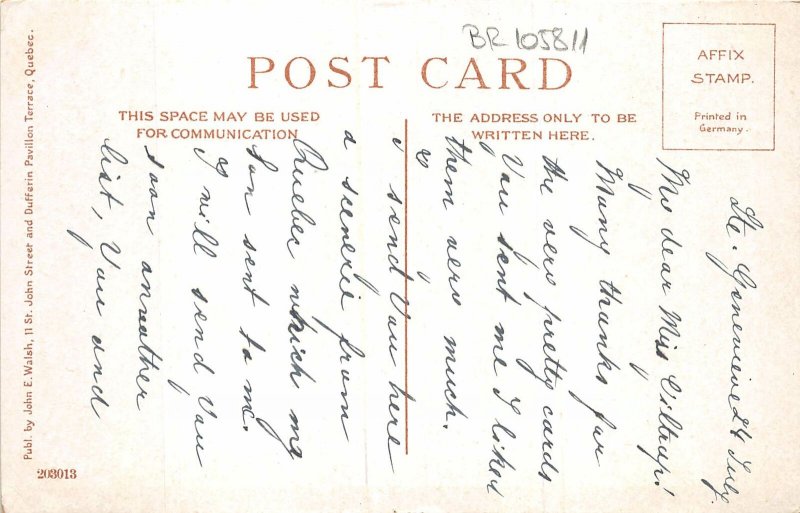 BR 105811
POST CARD
AFFIX
STAMP.
Printed in
Germany.
THIS SPACE MAY BE USED
FOR COMMUNICATION
THE ADDRESS ONLY TO BE
WRITTEN HERE.
Ste. Genevieve 24 July
My dear Miss
Many thanks for
the very pretty cards
You sent me I liked
them very much.
I send You here
a scenerie from
Quebec which my
Son sent to me.
I will send You
soon annother
list, You and
Publ. by John E. Walsh, 11 St. John Street and Dufferin Pavillon Terrace, Quebec.
203013